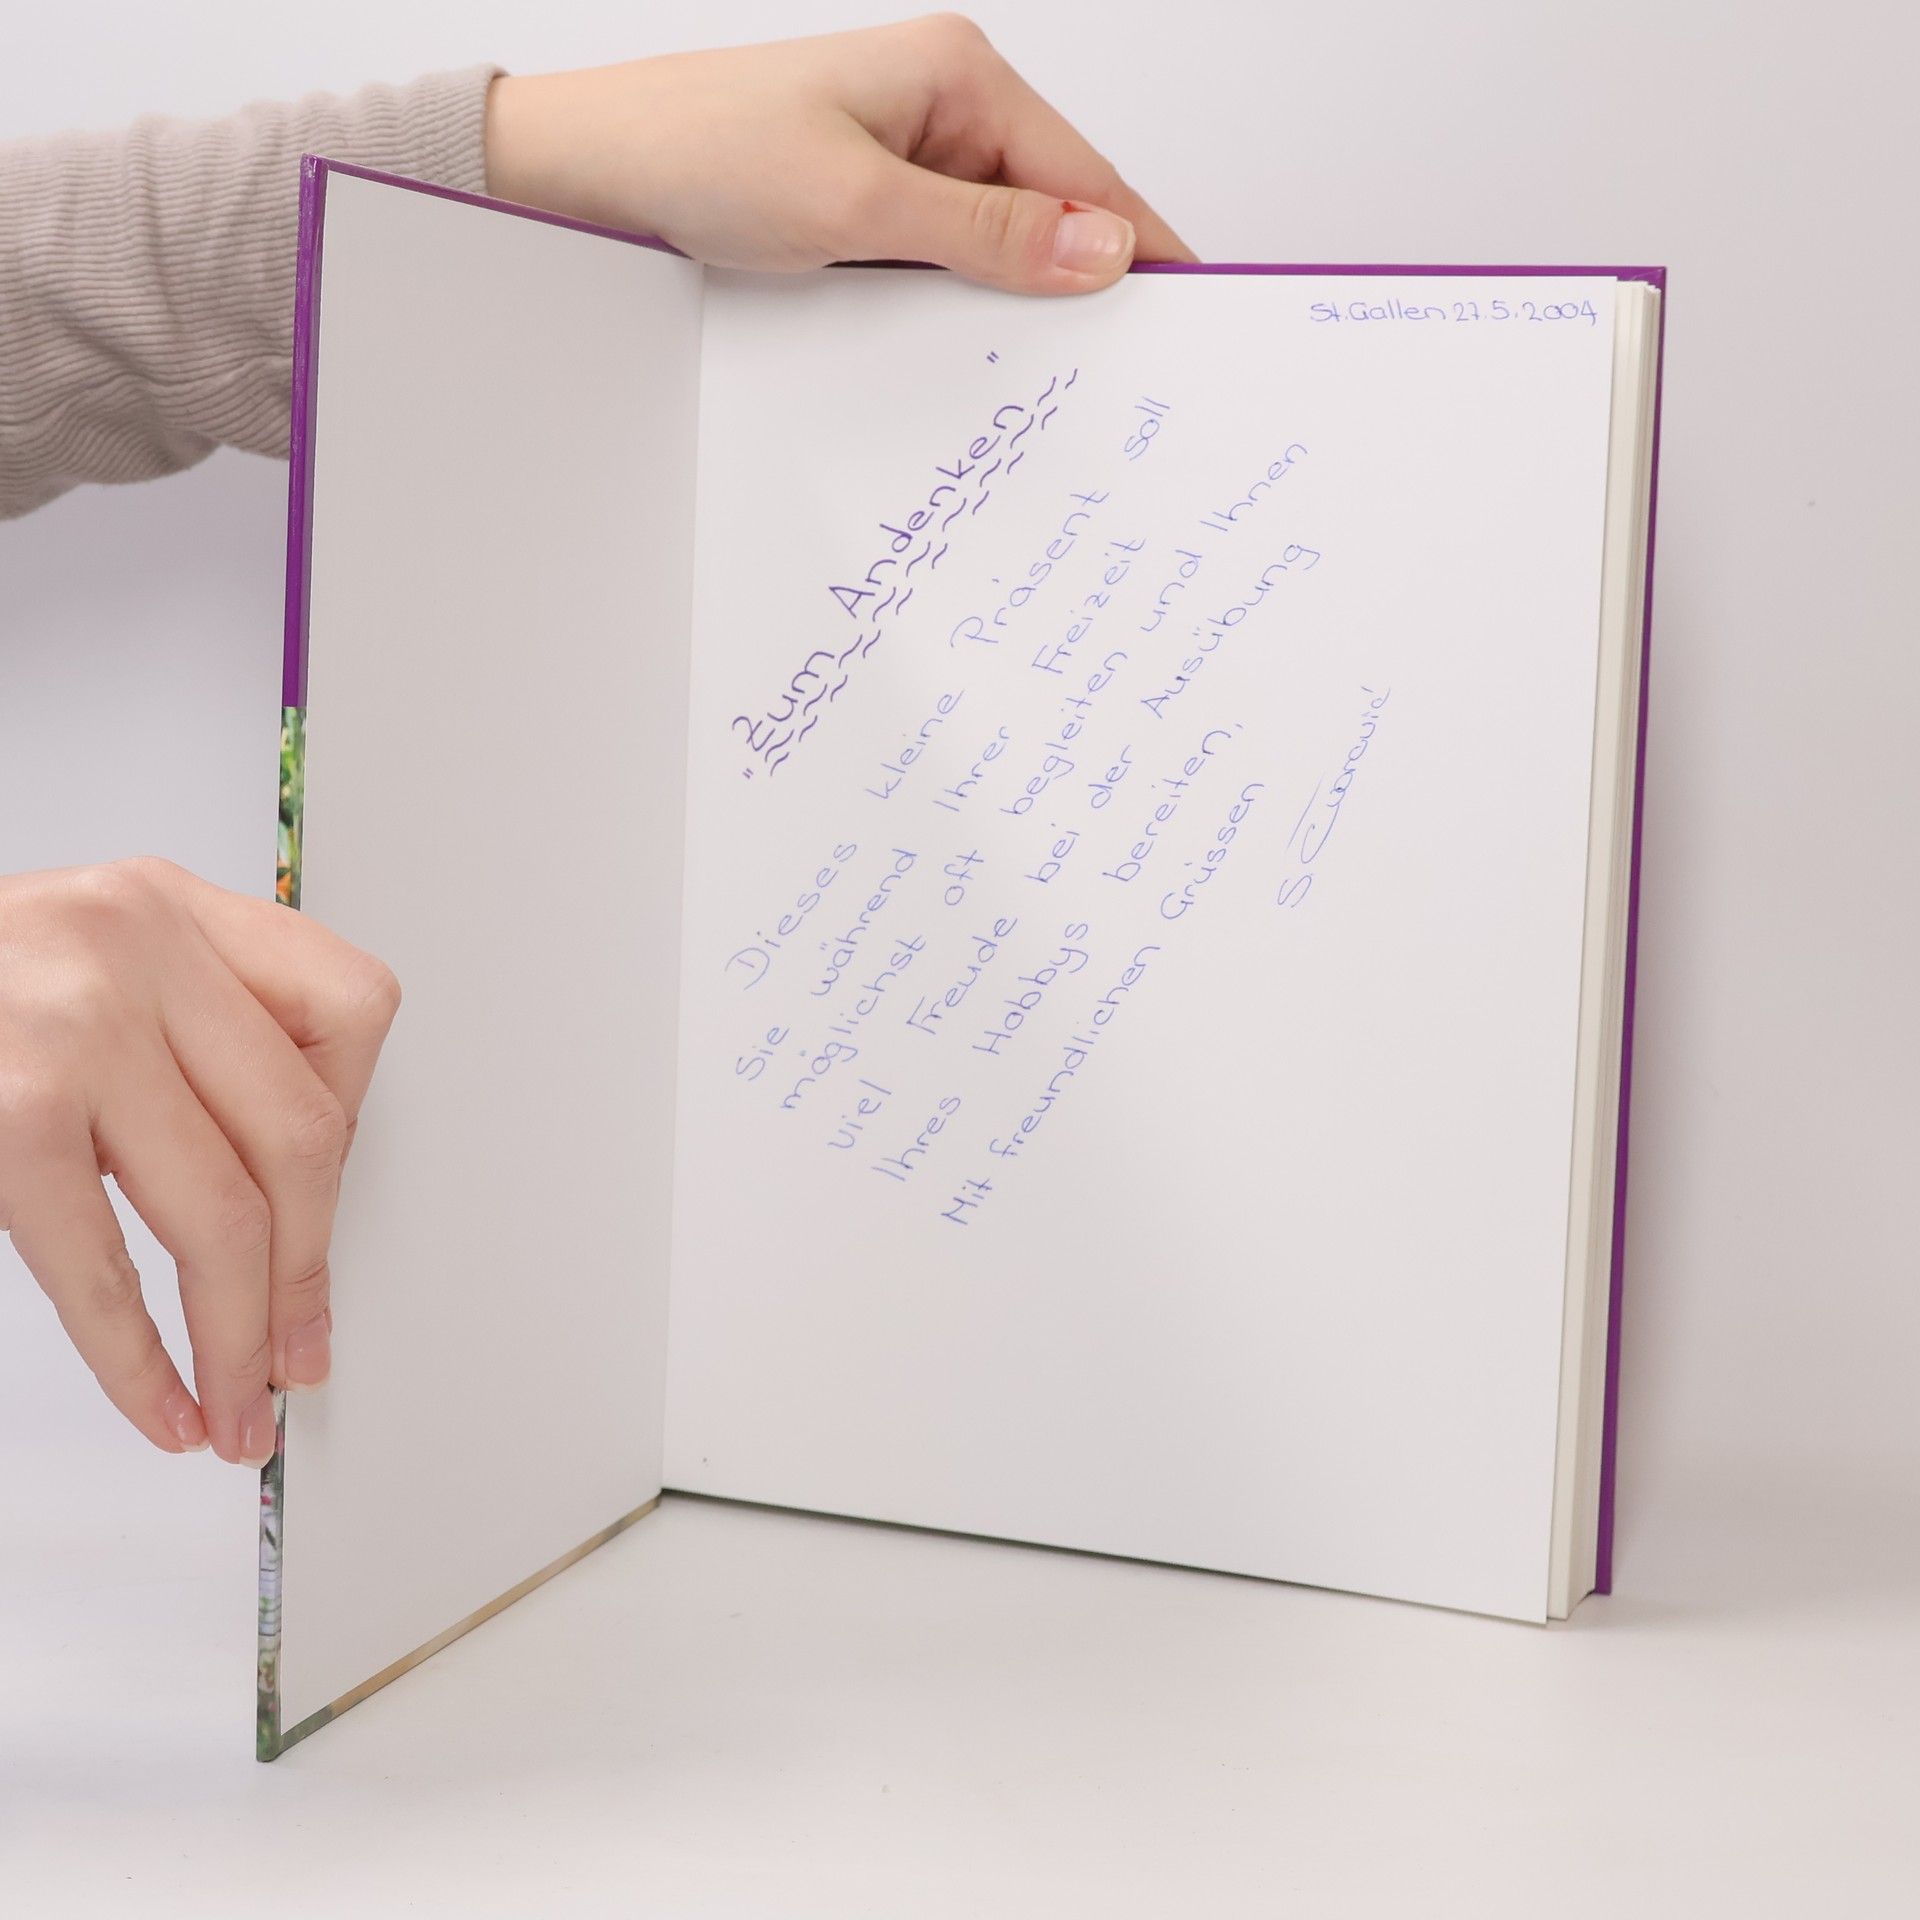 St. Gallen 27.5.2004
"Zum Andenken"
Dieses kleine Präsent soll
Sie während Ihrer Freizeit
möglichst oft begleiten und Ihnen
viel Freude bei der Ausübung
Ihres Hobbys bereiten,
Mit freundlichen Grüssen
S.